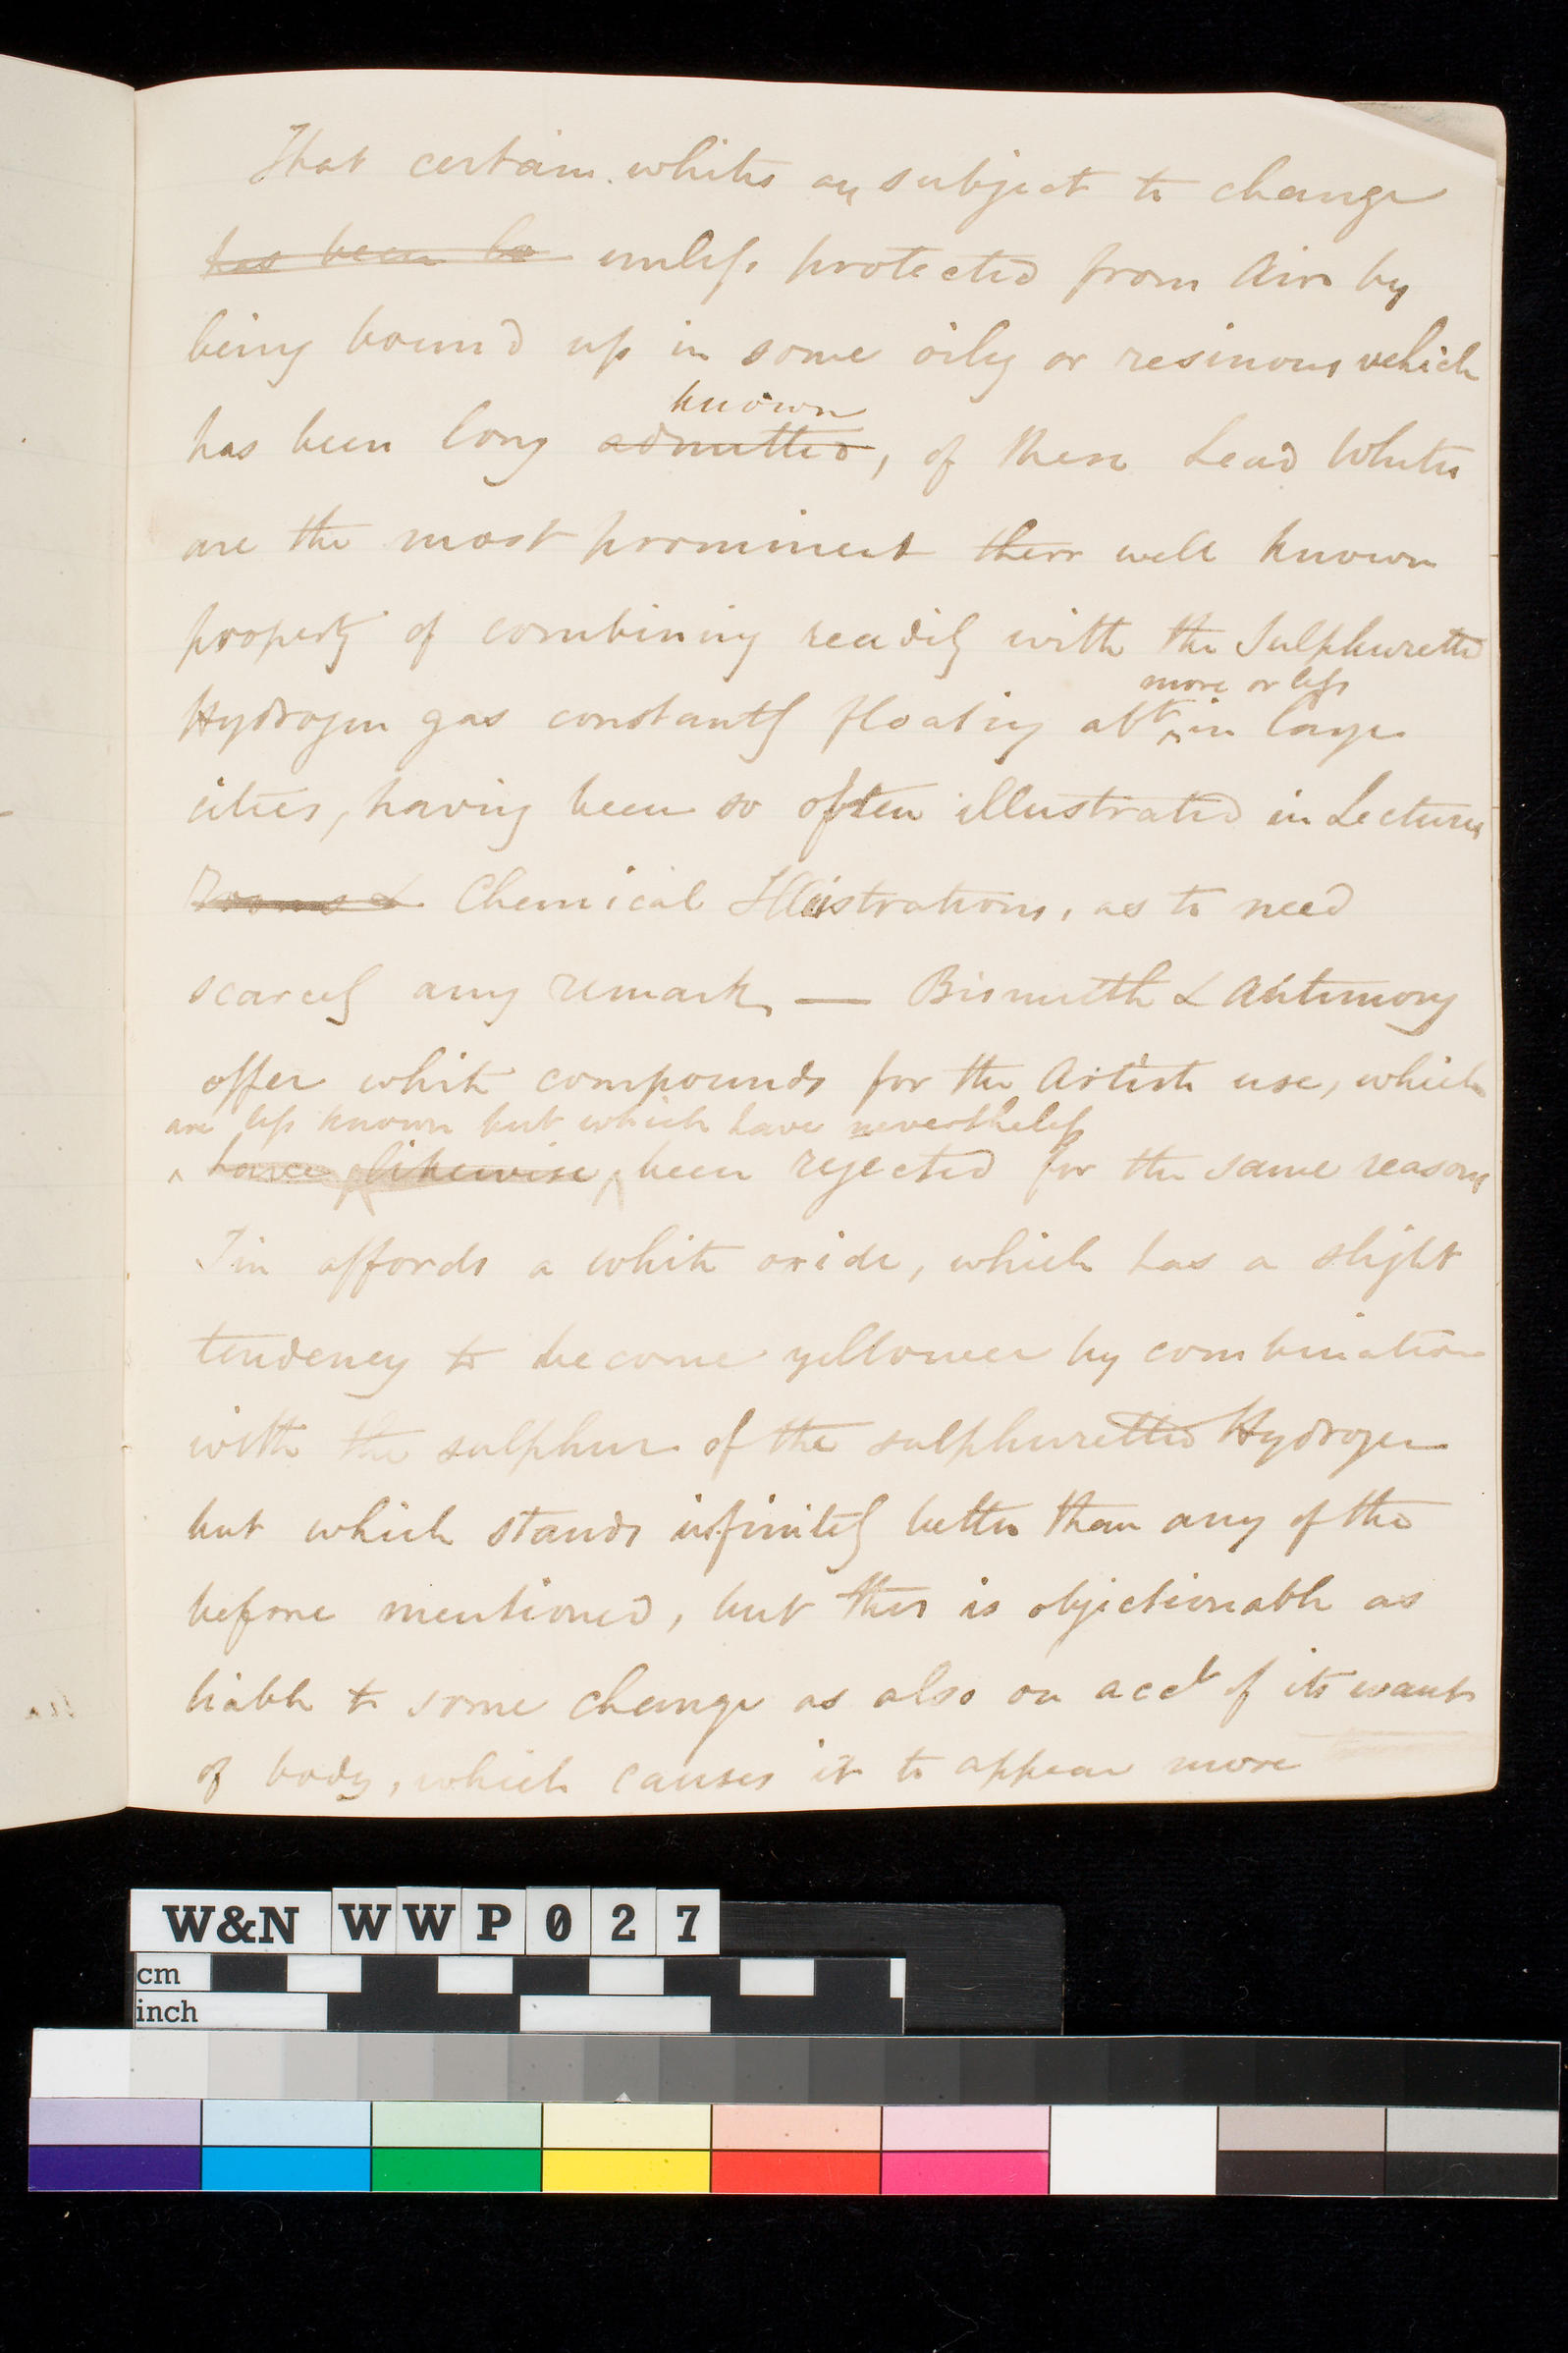 That certain whites are subject to change
has been lo unless protected from Air by
being bound up in some oily or resinous vehicle
known
has been long admitted, of these Lead Whites
are the most prominent their well known
property of combining readily with the Sulphuretted
more or less
Hydrogen gas constantly floating abt in large
cities, having been so often illustrated in Lectures
Rooms & Chemical Illustrations, as to need
scarcely any remark, — Bismuth & Antimony
offer white compounds for the Artists use, which
are less known but which have nevertheless
have likewise been rejected for the same reasons
Tin affords a white oxide, which has a slight
tendency to become yellower by combination
with the sulphur of the sulphuretted Hydrogen
but which stands infinitely better than any of the
before mentioned, but this is objectionable as
liable to some change as also on acct of its want
of body, which causes it to appear more
W&N WWP027
cm
inch